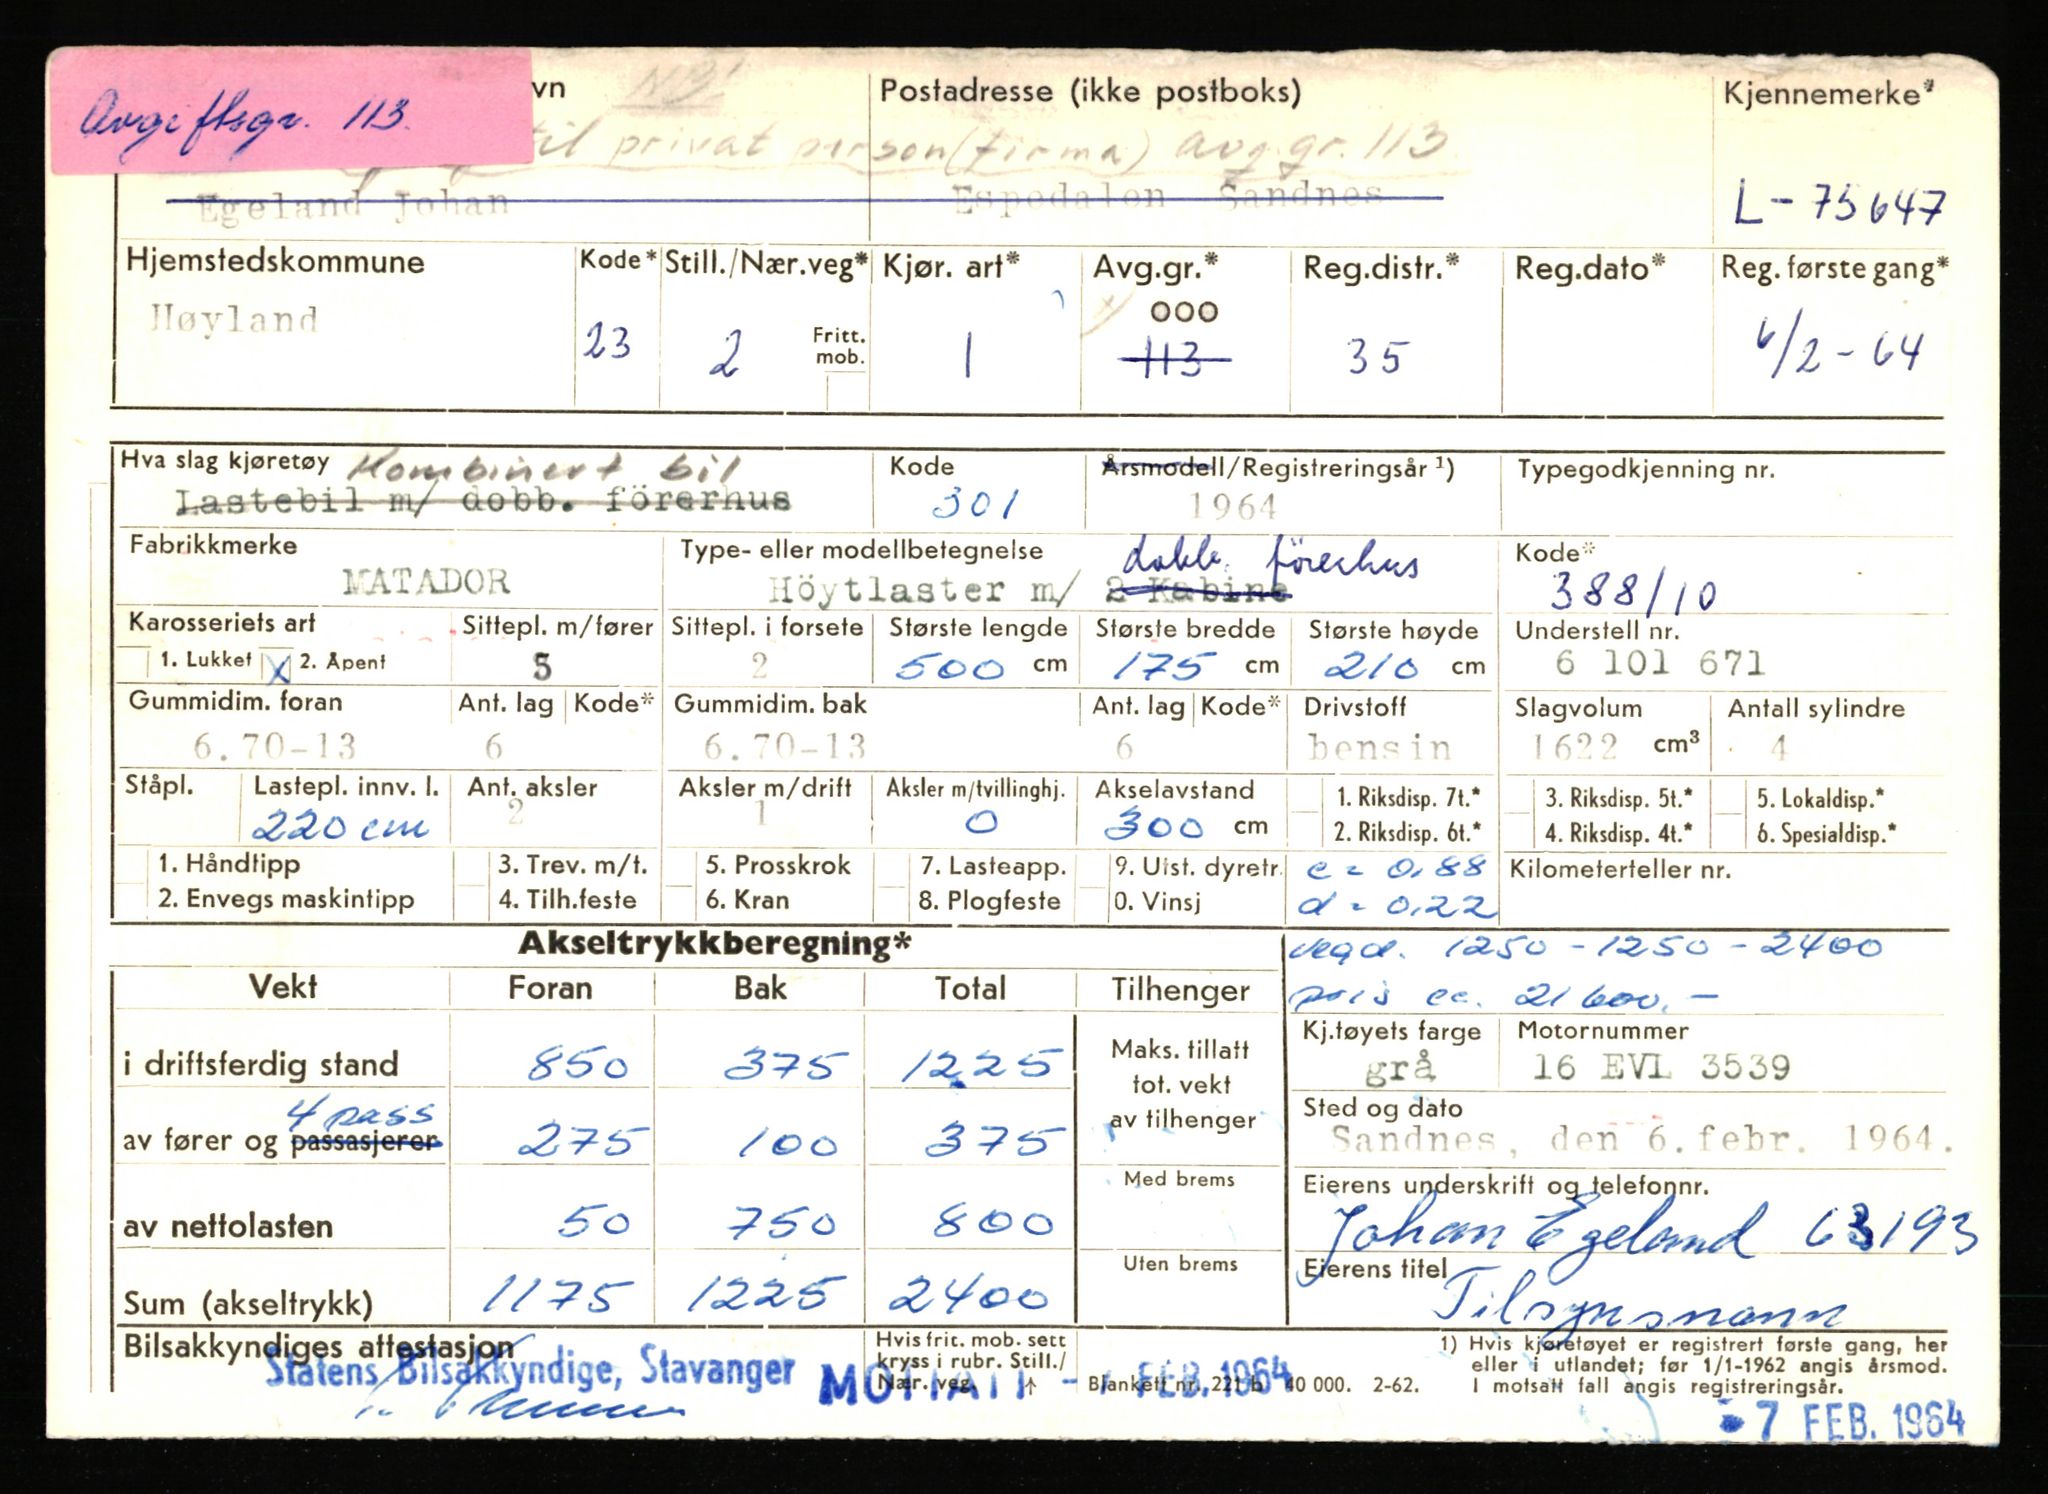 Avgiftsgr. 113.
vn NB! Postadresse (ikke postboks) Kjennemerke*
til privat person (firma) avg.gr. 113
Egeland Johan Espedalen Sandnes L-75647
Hjemstedskommune Kode* Still./Nær.veg* Kjør. art* Avg.gr.* Reg.distr.* Reg.dato* Reg. første gang*
Høyland 23 2 Fritt. mob. 1 000 113 35 6/2-64
Hva slag kjøretøy Kombinert bil Kode Årsmodell/Registreringsår ¹) Typegodkjenning nr.
Lastebil m/ dobb. förerhus 301 1964
Fabrikkmerke Type- eller modellbetegnelse dobb. förerhus Kode*
MATADOR Höytlaster m/ 2 Kabine 388/10
Karosseriets art Sittepl. m/fører Sittepl. i forsete Største lengde Største bredde Største høyde Understell nr.
1. Lukket X 2. Åpent 5 2 500 cm 175 cm 210 cm 6 101 671
Gummidim. foran Ant. lag Kode* Gummidim. bak Ant. lag Kode* Drivstoff Slagvolum Antall sylindre
6.70-13 6 6.70-13 6 bensin 1622 cm³ 4
Ståpl. Lastepl. innv. l. Ant. aksler Aksler m/drift Aksler m/tvillinghj. Akselavstand 1. Riksdisp. 7t.* 3. Riksdisp. 5t.* 5. Lokaldisp.*
220 cm 2 1 0 300 cm 2. Riksdisp. 6t.* 4. Riksdisp. 4t.* 6. Spesialdisp.*
1. Håndtipp 3. Trev. m/t. 5. Prosskrok 7. Lasteapp. 9. Utst. dyretr. c = 0,88 Kilometerteller nr.
2. Envegs maskintipp 4. Tilh.feste 6. Kran 8. Plogfeste 0. Vinsj d = 0,22
Akseltrykkberegning* vegd. 1250-1250-2400
Vekt Foran Bak Total Tilhenger pris ca. 21600.-
Kj.tøyets farge Motornummer
i driftsferdig stand 850 375 1225 Maks. tillatt tot. vekt av tilhenger grå 16 EVL 3539
4 pass Sted og dato
av fører og passasjerer 275 100 375 Sandnes, den 6.febr. 1964.
Med brems Eierens underskrift og telefonnr.
av nettolasten 50 750 800 Johan Egeland 63193
Uten brems Eierens titel
Sum (akseltrykk) 1175 1225 2400 Tilsynsmann
Bilsakkyndiges attestasjon Hvis frit. mob. sett kryss i rubr. Still./ Nær. veg. ↑ 1) Hvis kjøretøyet er registrert første gang, her
eller i utlandet; før 1/1-1962 angis årsmod.
Statens Bilsakkyndige, Stavanger MOTTATT - 7 FEB. 1964 Blankett nr. 221 b 40 000. 2-62. I motsatt fall angis registreringsår.
- 7 FEB. 1964